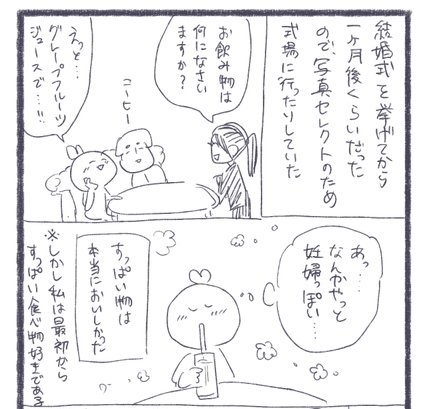 結婚式を挙げてから
一ヶ月後くらいだった
ので、写真セレクトのため
式場に行ったりしていた
お飲み物は
何になさい
ますか?
コーヒー
えっと…
グレープフルーツ
ジュースで…!!
あっ…
なんかやっと
妊婦っぽい…
すっぱい物は
本当においしかった
※しかし私は最初から
すっぱい食べ物好きである